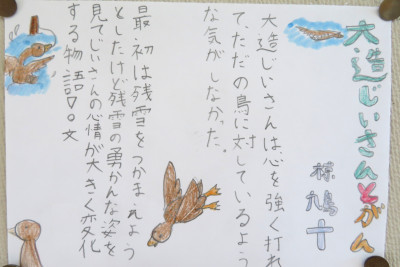 大造じいさんとがん
椋鳩十
大造じいさんは、心を強く打れ
て、ただの鳥に対しているよう
な気がしなかった。
最初は残雪をつかまえよう
としたけど残雪の勇かんな姿を
見てじいさんの心情が大きく変化
する物語
文